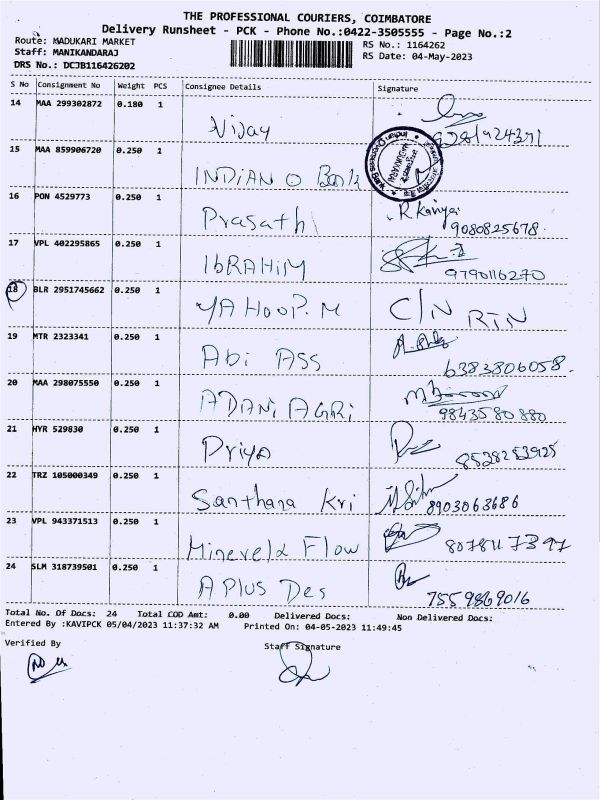 THE PROFESSIONAL COURIERS, COIMBATORE
Delivery Runsheet - PCK - Phone No.:0422-3505555 - Page No.:2
Route: MADUKARI MARKET
RS No.: 1164262
Staff: MANIKANDARAJ
RS Date: 04-May-2023
DRS No.: DCJB116426202
S No Consignment No Weight PCS Consignee Details Signature
14 MAA 299302872 0.180 1 Vijay
15 MAA 859906720 0.250 1 INDIAN O Bank
16 PON 4529773 0.250 1 Prasath R Kaviya
9080825678
17 VPL 402295865 0.250 1 IBRAHIM
9790116270
18 BLR 2951745662 0.250 1 YAHOOP.M C/N RTN
19 MTR 2323341 0.250 1 Abi ASS
6383806058
20 MAA 298075550 0.250 1 ADANI AGRI
9843580880
21 HYR 529830 0.250 1 Priya
22 TRZ 105000349 0.250 1 Santhana Kri
8903063686
23 VPL 943371513 0.250 1 Flow
24 SLM 318739501 0.250 1 APLUS Des
7559869016
Total No. Of Docs: 24 Total COD Amt: 0.00 Delivered Docs: Non Delivered Docs:
Entered By :KAVIPCK 05/04/2023 11:37:32 AM Printed On: 04-05-2023 11:49:45
Verified By
Staff Signature